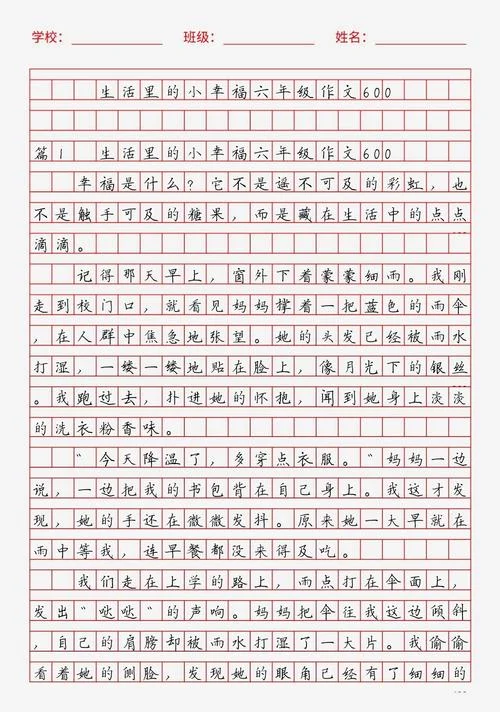 学校: 班级: 姓名:
生活里的小幸福六年级作文600
篇1 生活里的小幸福六年级作文600
幸福是什么?它不是遥不可及的彩虹,也
不是触手可及的糖果,而是藏在生活中的点点
滴滴。
记得那天早上,窗外下着蒙蒙细雨。我刚
走到校门口,就看见妈妈撑着一把蓝色的雨伞
,在人群中焦急地张望。她的头发已经被雨水
打湿,一缕一缕地贴在脸上,像月光下的银丝
。我跑过去,扑进她的怀抱,闻到她身上淡淡
的洗衣粉香味。
"今天降温了,多穿点衣服。"妈妈一边
说,一边把我的书包背在自己身上。我这才发
现,她的手还在微微发抖。原来她一大早就在
雨中等我,连早餐都没来得及吃。
我们走在上学的路上,雨点打在伞面上,
发出"哒哒"的声响。妈妈把伞往我这边倾斜
,自己的肩膀却被雨水打湿了一大片。我偷偷
看着她的侧脸,发现她的眼角已经有了细细的